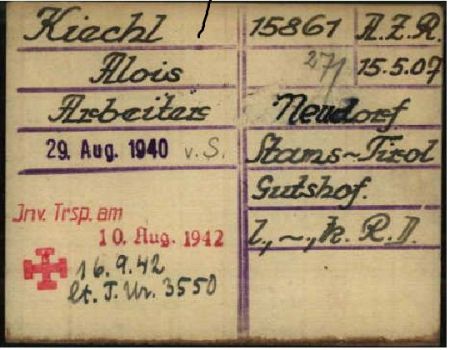 Kiechl 15861 A.Z.R.
Alois 27/ 15.5.07
Arbeiter Neudorf
29. Aug. 1940 v. S. Stams-Tirol
Gutshof.
Inv. Trsp. am l, ~, k. R.D.
10. Aug. 1942
16.9.42
lt. T. Ur. 3550